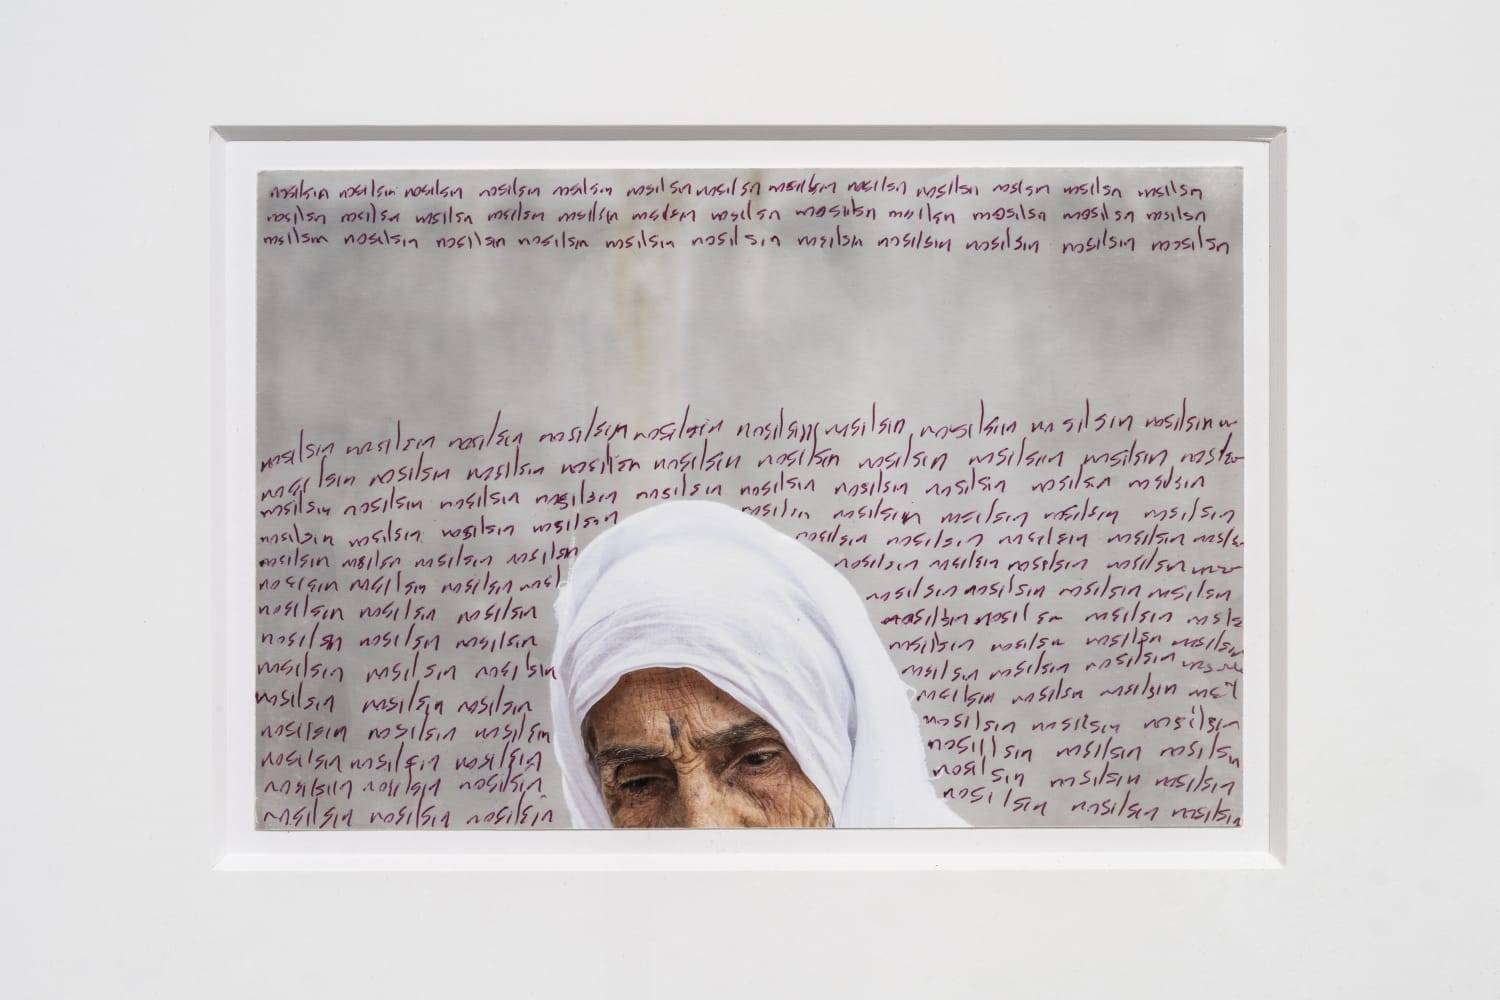 nasılsın nasılsın nasılsın nasılsın nasılsın nasılsın nasılsın nasılsın nasılsın nasılsın nasılsın nasılsın nasılsın
nasılsın nasılsın nasılsın nasılsın nasılsın nasılsın nasılsın nasılsın nasılsın nasılsın nasılsın nasılsın
nasılsın nasılsın nasılsın nasılsın nasılsın nasılsın nasılsın nasılsın nasılsın nasılsın nasılsın
nasılsın nasılsın nasılsın nasılsın nasılsın nasılsın nasılsın nasılsın nasılsın nasılsın
nasılsın nasılsın nasılsın nasılsın nasılsın nasılsın nasılsın nasılsın nasılsın
nasılsın nasılsın nasılsın nasılsın nasılsın nasılsın nasılsın nasılsın nasılsın nasılsın
nasılsın nasılsın nasılsın nasılsın nasılsın nasılsın nasılsın nasılsın nasılsın
nasılsın nasılsın nasılsın nasılsın nasılsın nasılsın nasılsın nasılsın
nasılsın nasılsın nasılsın nasıl nasılsın nasılsın nasılsın nasılsın
nasılsın nasılsın nasılsın nasılsın nasılsın nasılsın nasılsın
nasılsın nasılsın nasılsın nasılsın nasılsın nasılsın nasıl
nasılsın nasılsın nasılsın nasılsın nasılsın nasılsın nasılsın
nasılsın nasılsın nasılsın nasılsın nasılsın nasılsın
nasılsın nasılsın nasılsın nasılsın nasılsın nasılsın nasıl
nasılsın nasılsın nasılsın nasılsın nasılsın nasılsın
nasılsın nasılsın nasılsın nasılsın nasılsın nasılsın
nasılsın nasılsın nasılsın nasılsın nasılsın nasılsın
nasılsın nasılsın nasılsın nasılsın nasılsın nasılsın